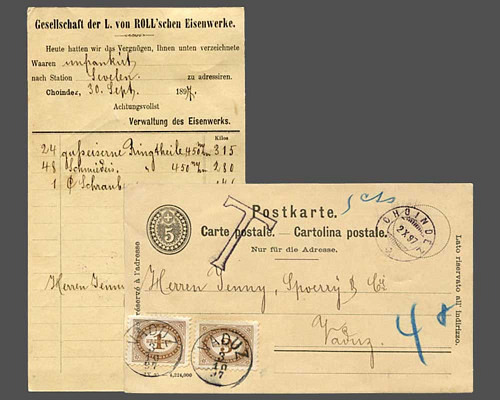 Gesellschaft der L. von ROLL'schen Eisenwerke.
Heute hatten wir das Vergnügen, Ihnen unten verzeichnete
Waaren unfrankirt
nach Station Sevelen. zu adressiren.
Choindez, 30. Sept. 1897.
Achtungsvollst
Verwaltung des Eisenwerks.
Kilos
24 gusseiserne Ringtheile 450 315
48 schmiedeis. " 450 280
1 Schraub
Herren Jenny
Postkarte.
Carte postale. — Cartolina postale.
Nur für die Adresse.
5
T
5 cts
CHOINDEZ
2.X.97
réservé à l'adresse
Lato riservato all' indirizzo.
Herren Jenny, Spoerry & Cie
Vaduz.
4
VADUZ
3
10
97